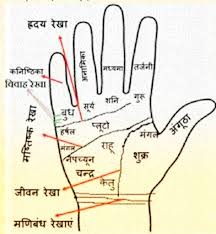 ह्रदय रेखा
अनामिका
मध्यमा
तर्जनी
कनिष्ठिका
विवाह रेखा
सूर्य
शनि
गुरू
बुध
अंगूठा
मस्तिष्क रेखा
हर्षल
प्लूटो
मंगल
मंगल
राहू
शुक्र
नेपच्यून
चन्द्र
केतु
जीवन रेखा
मणिबंध रेखाएं